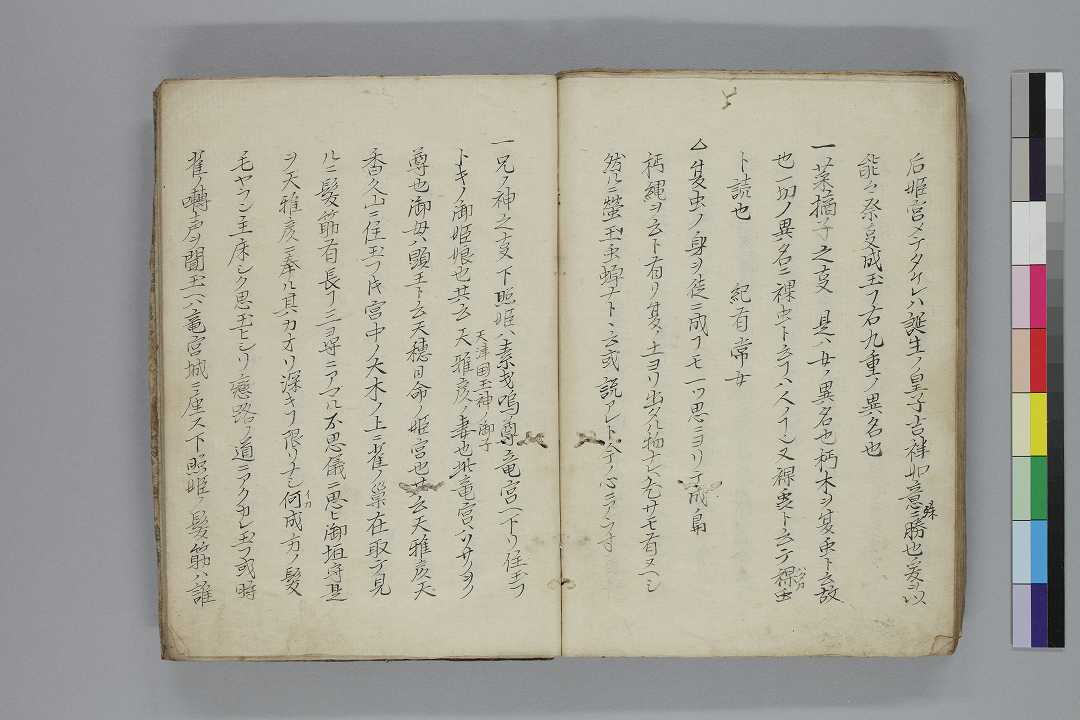 后姫宮メテタケレハ誕生ノ皇子吉祥如意ニ殊勝也爰ヲ以
能々祭受成玉フ右九重ノ異名也
一菜摘子之夏 是ハ女ノ異名也柄木ヲ夏虫ト云故
也一切ノ異名ニ裸虫ト云フハ人ノ一ツ又裸虫ト云テ裸虫
ト読也 紀有常女
△夏虫ノ身ヲ徒ニ成フモ一ツ思ニヨリテ成鳧
柄縄ヲ云ト有リ夏ハ土ヨリ出タル物ナレハ尤サモ有ヌヘシ
然ルニ蛍玉虫蝉ナトヽ云或説アレト今ノ心ニアラス
一兄ノ神之夏下照姫ハ素戔嗚尊竜宮ヘ下リ住玉フ
トキノ御姫娘也其云天雅彦ノ妻也此竜宮
天津国玉神ノ御子
尊也御母ハ頭玉ト云天穂日命ノ姫宮也其云天雅彦天
香久山ニ住玉フ時宮中ノ大木ノ上ニ雀ノ巣在取テ見
ルニ髪筋有長サ三ヨ尋ニアマル不思儀ニ思ヒ御垣守是
ヲ天雅彦ニ奉ル其カオリ深キフ限リナシ何成方ノ髪
イカ
毛ヤラン主床シク思玉ヒシリ恋路ノ道ニアクカレ玉フ或時
雀ノ囀声ヲ聞玉ヘハ竜宮城ニ座ス下照姫ノ髪筋ハ誰